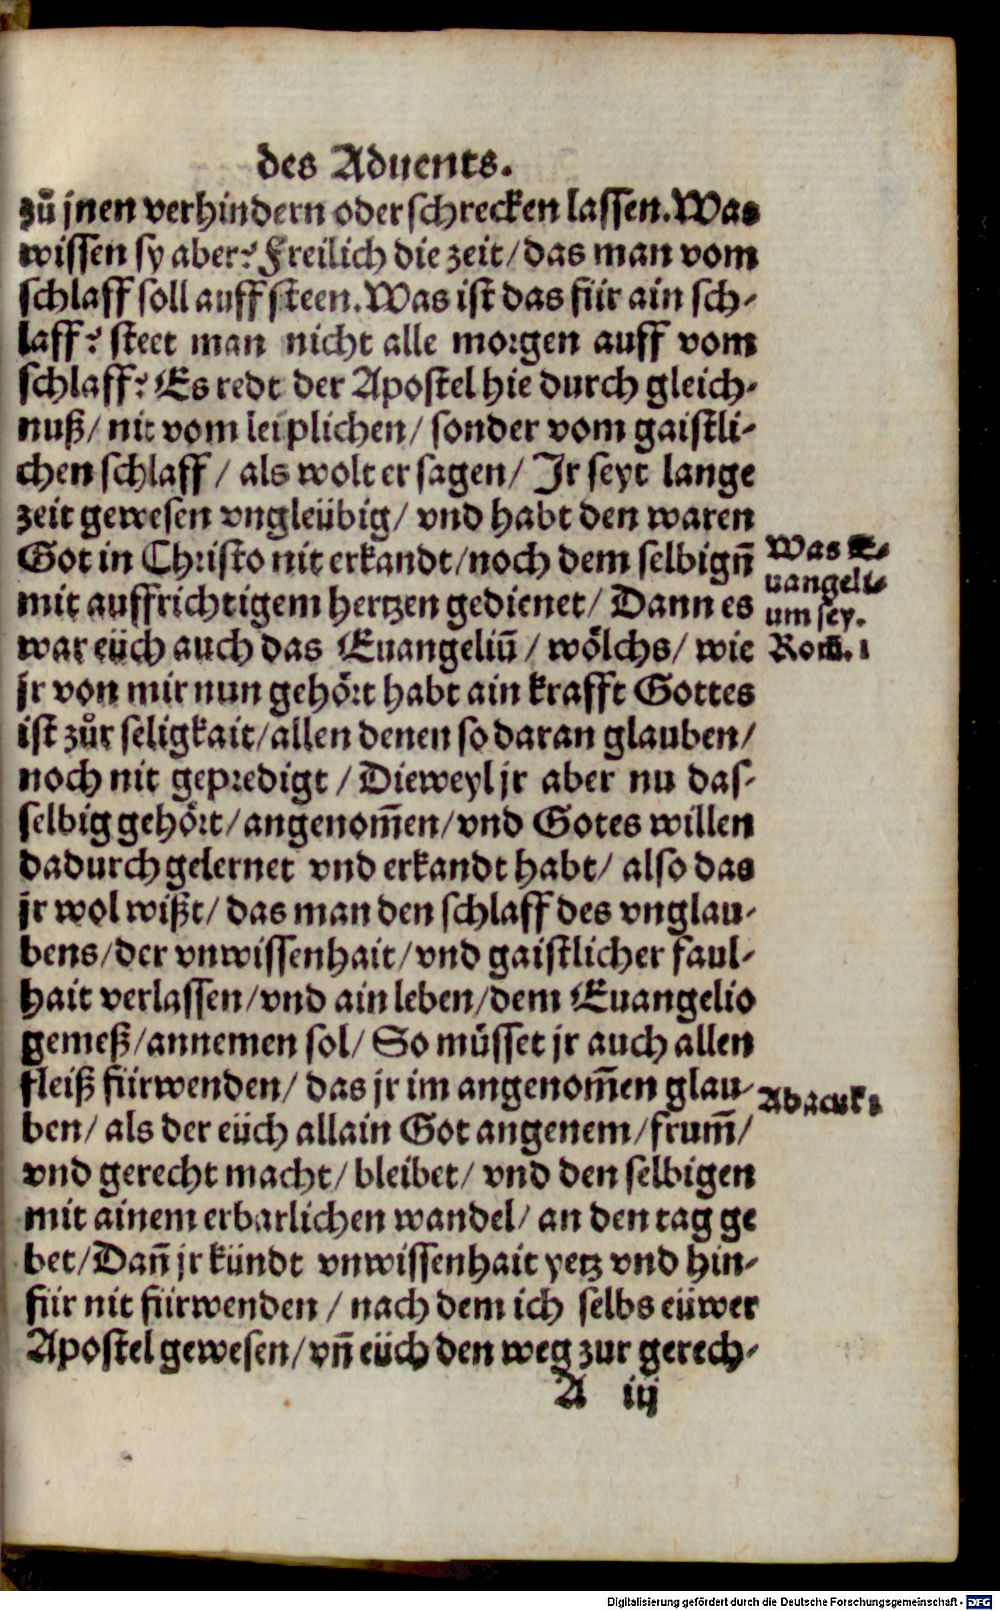 des Aduents.
zů jnen verhindern oder schrecken lassen. Was
wissen sy aber? Freilich die zeit/ das man vom
schlaff soll auff steen. Was ist das für ain sch-
laff? steet man nicht alle morgen auff vom
schlaff? Es redt der Apostel hie durch gleich-
nuß/ nit vom leiplichen/ sonder vom gaistli-
chen schlaff/ als wolt er sagen/ Jr seyt lange
zeit gewesen vngleübig/ vnd habt den waren
Got in Christo nit erkandt/ noch dem selbign̄
mit auffrichtigem hertzen gedienet/ Dann es
war eüch auch das Euangeliū/ wölchs/ wie
jr von mir nun gehört habt ain krafft Gottes
ist zůr seligkait/ allen denen so daran glauben/
noch nit gepredigt/ Dieweyl jr aber nu das-
selbig gehört/ angenom̄en/ vnd Gotes willen
dadurch gelernet vnd erkandt habt/ also das
jr wol wißt/ das man den schlaff des vnglau-
bens/ der vnwissenhait/ vnd gaistlicher faul-
hait verlassen/ vnd ain leben/ dem Euangelio
gemeß/ annemen sol/ So müsset jr auch allen
fleiß fürwenden/ das jr im angenom̄en glau-
ben/ als der eüch allain Got angenem/ frum̄/
vnd gerecht macht/ bleibet/ vnd den selbigen
mit ainem erbarlichen wandel/ an den tag ge
bet/ Dan̄ jr kündt vnwissenhait yetz vnd hin-
für nit fürwenden/ nach dem ich selbs eüwer
Apostel gewesen/ vn̄ eüch den weg zur gerech-
A iij
Was E-
uangeli-
um sey.
Rom̄. 1
Abacuk 2
Digitalisierung gefördert durch die Deutsche Forschungsgemeinschaft - DFG